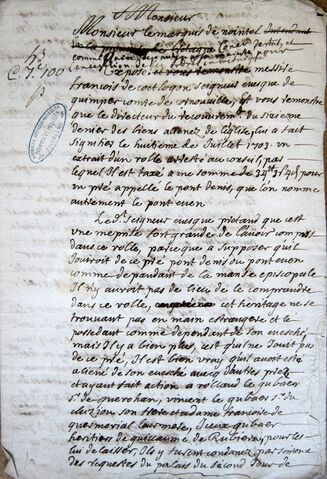 A Monsieur
Monsieur le marquis de nointel Intendant
en Bretagne Conser destat, et
commre
Expose et vous remonstre messire
francois de coetlogon seigneur evesque de
quimper comte de cornouaille, Et vous remonstre
que le directeur du recouvrement du sixieme
denier des biens alienez de l'Eglise, lui a fait
signifier le huitieme de Juillet 1703. un
extrait d'un rolle aresté au conseil, par
lequel Il est taxé a une somme de pour
un pré appellé le pont denis, que lon nomme
autrement le pont even
Le dt Seigneur evesque pretand que cest
une meprise fort grande de l'avoir compris
dans ce rolle, parceque a supposer qu'il
Jouiroit de ce pré pont denis ou pont even
comme depandant de la manse episcopale
Il n'y auroit pas de lieu de le comprendre
dans ce rolle, cet heritage ne se
trouvant pas en main estrangere et le
possedant comme dependant de son evesché
mais Il y a bien plus, cest qu'il ne Jouit pas
de ce pré, Il est bien vray qu'il avoit esté
aliené de son evesché avec d'autres priez
et ayant fait action a rolland le gubaer
sr de querohan, vincent le gubaer sr du
son frere et dame francoise de
quesmorial leur mere, veuve gubaer
heritiers de guillaume de pour les
lui laisser, Ils y furent condamnez par sentence
des requestes du palais du second Jour de